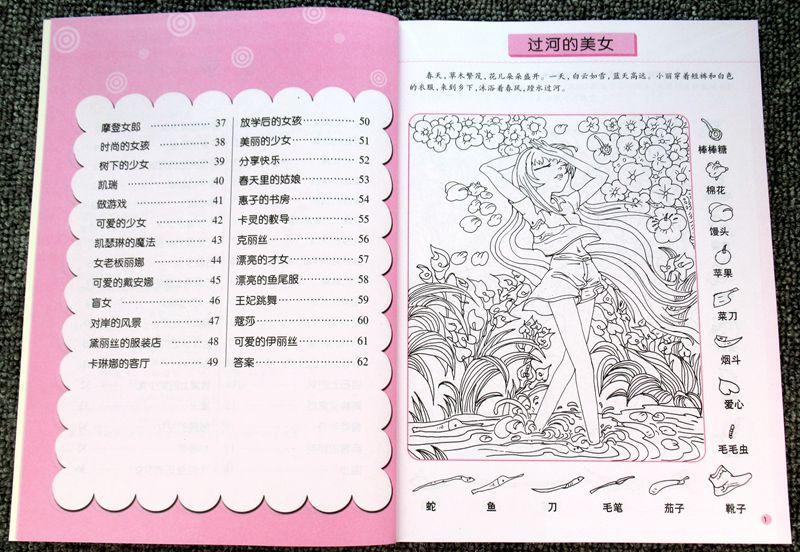 摩登女郎 ············ 37
时尚的女孩 ············ 38
树下的少女 ············ 39
凯瑞 ············ 40
做游戏 ············ 41
可爱的少女 ············ 42
凯瑟琳的魔法 ············ 43
女老板丽娜 ············ 44
可爱的戴安娜 ············ 45
盲女 ············ 46
对岸的风景 ············ 47
黛丽丝的服装店 ············ 48
卡琳娜的客厅 ············ 49
放学后的女孩 ············ 50
美丽的少女 ············ 51
分享快乐 ············ 52
春天里的姑娘 ············ 53
惠子的书房 ············ 54
卡灵的教导 ············ 55
克丽丝 ············ 56
漂亮的才女 ············ 57
漂亮的鱼尾服 ············ 58
王妃跳舞 ············ 59
蔻莎 ············ 60
可爱的伊丽丝 ············ 61
答案 ············ 62
过河的美女
春天,草木繁茂,花儿朵朵盛开。一天,白云如雪,蓝天高远。小丽穿着短裤和白色
的衣服,来到乡下,沐浴着春风,蹚水过河。
棒棒糖
棉花
馒头
苹果
菜刀
烟斗
爱心
毛毛虫
蛇 鱼 刀 毛笔 茄子 靴子
1